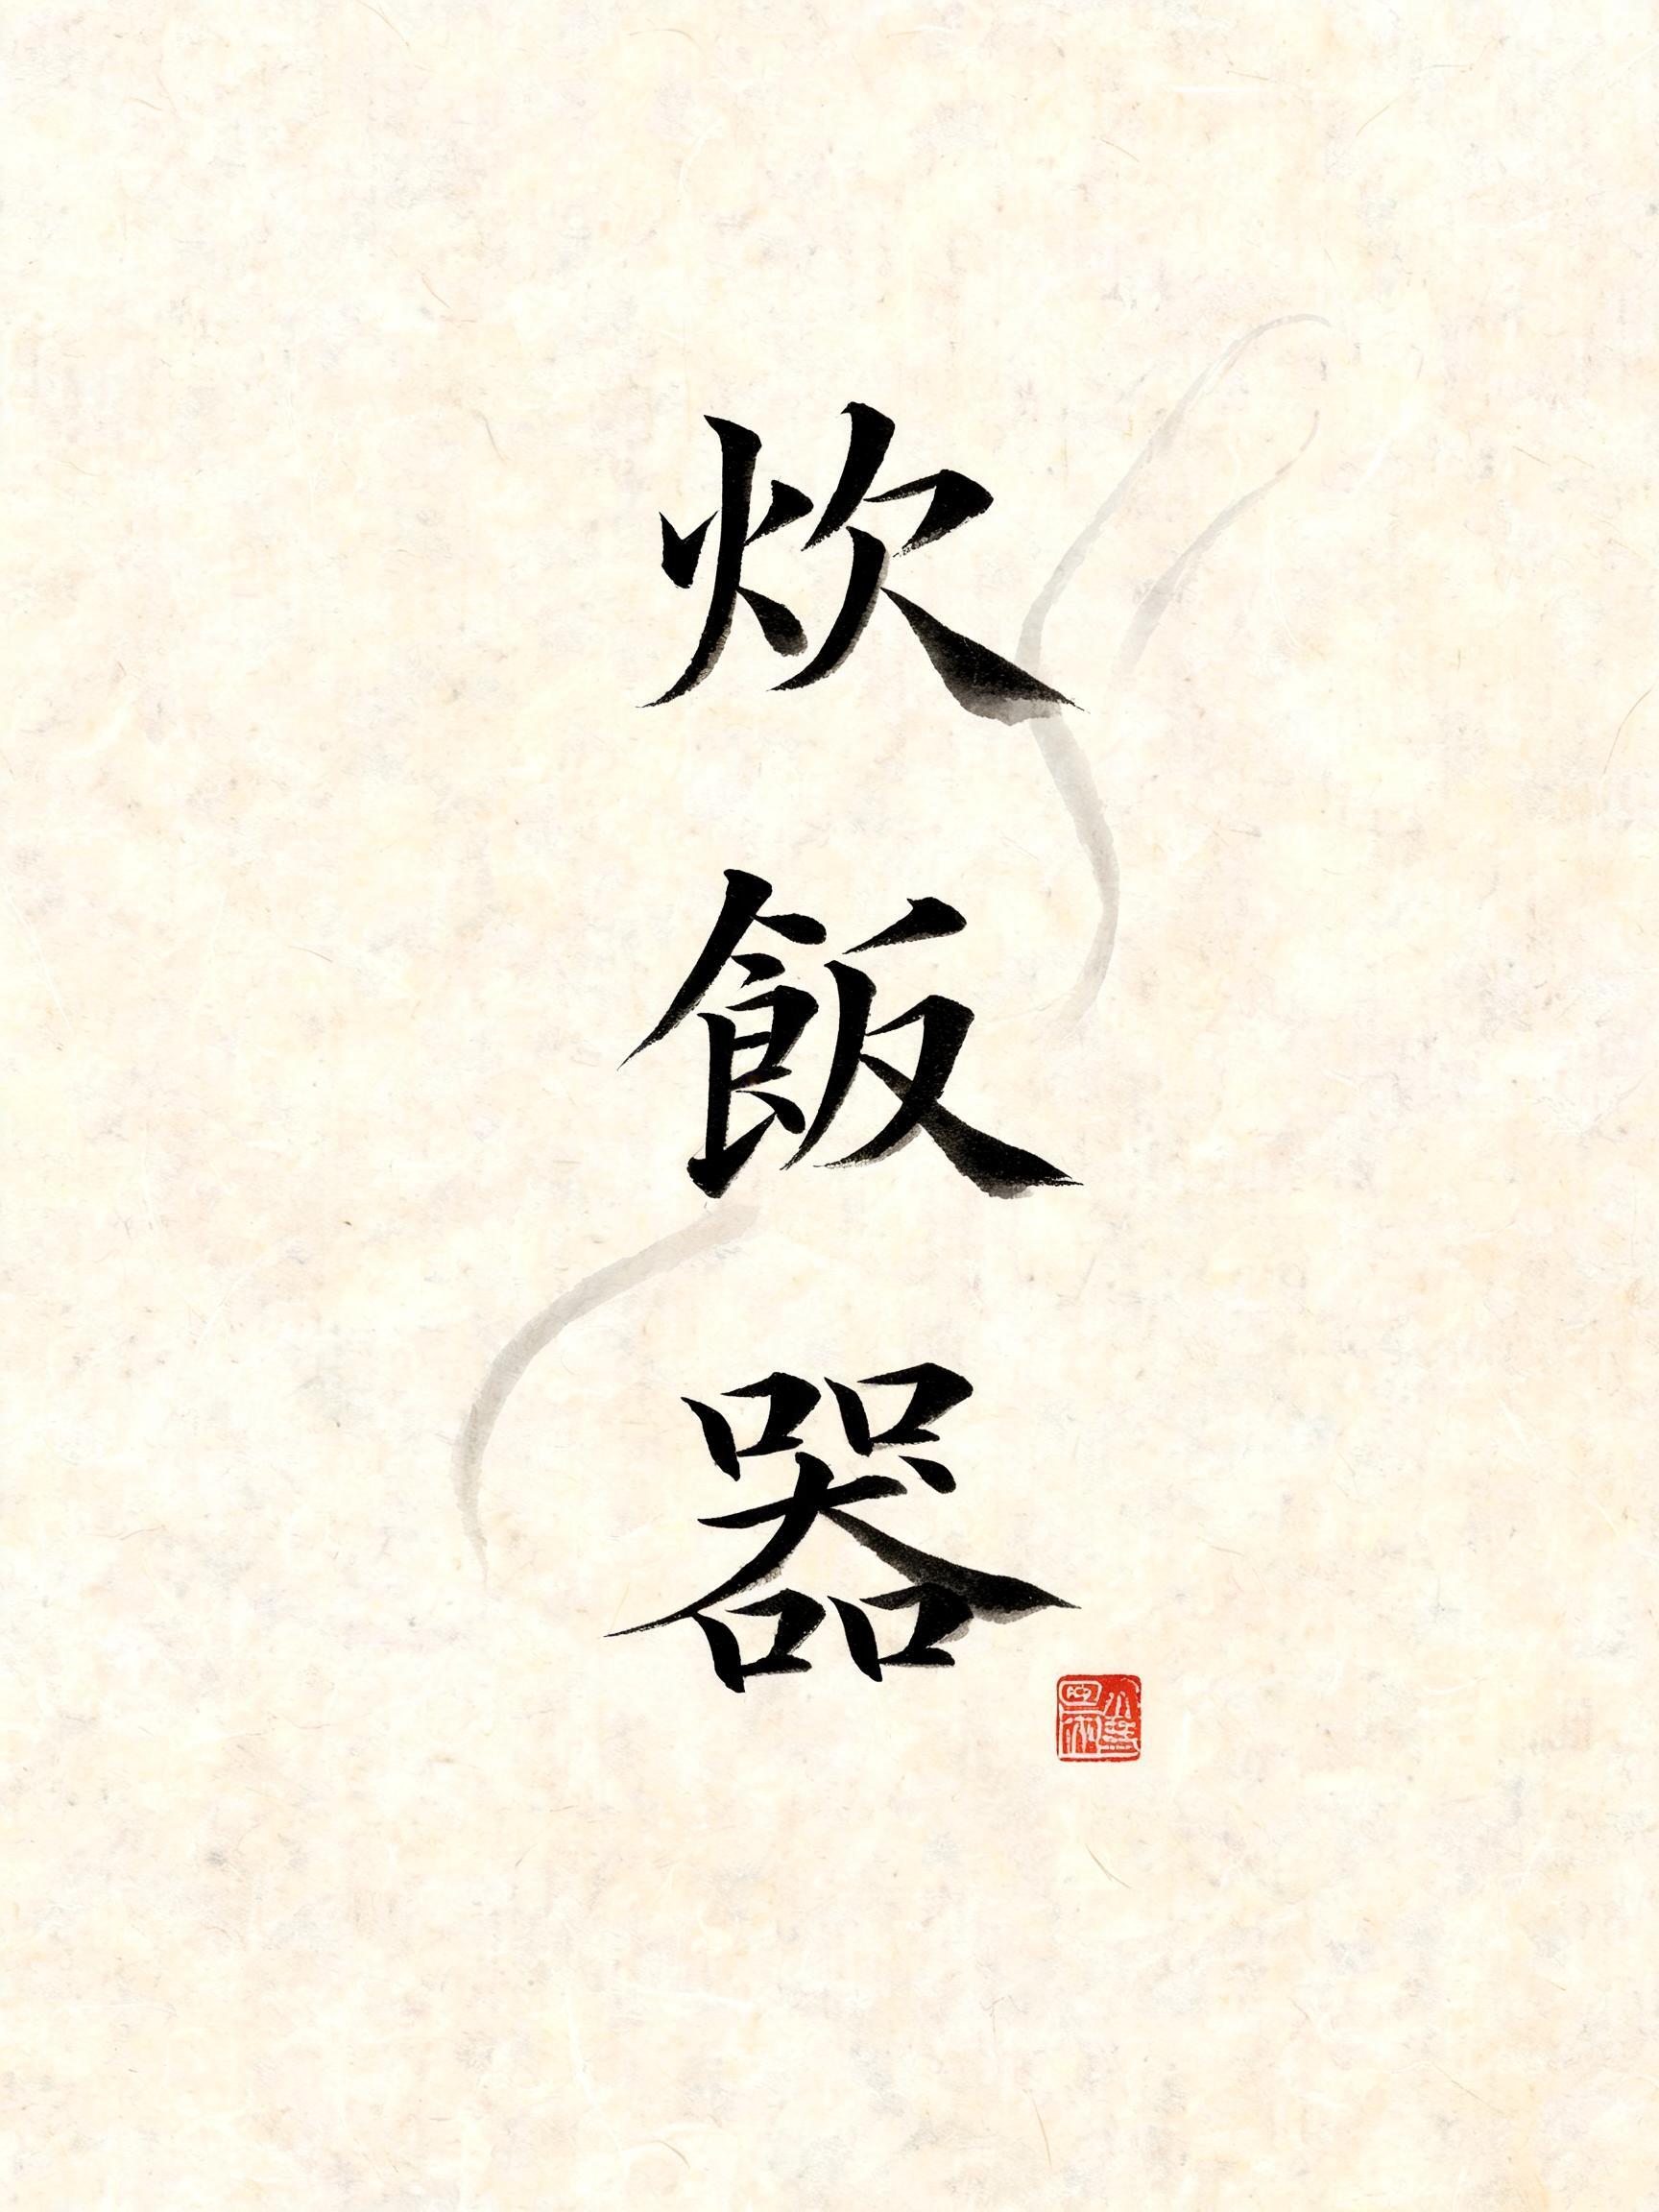 炊飯器